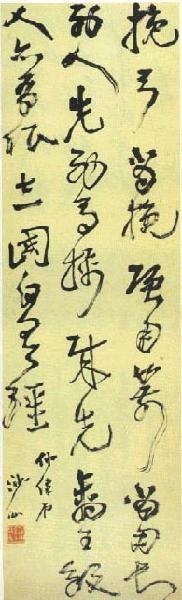 挽弓當挽強用箭當用長
射人先射馬擒賊先擒王殺
人亦有限立國自有疆